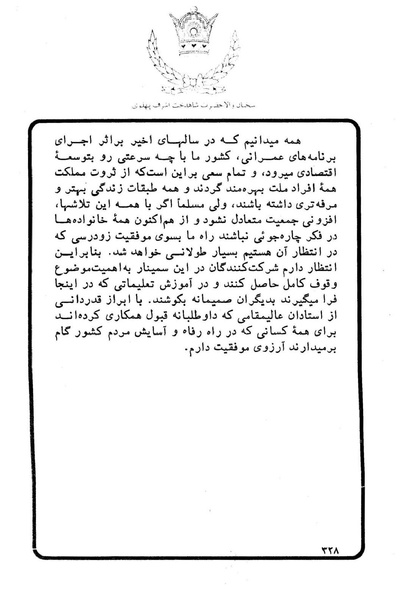 سخنان والاحضرت شاهدخت اشرف پهلوی
همه میدانیم که در سالهای اخیر براثر اجرای
برنامه‌های عمرانی، کشور ما با چه سرعتی رو بتوسعهٔ
اقتصادی میرود، و تمام سعی براین است‌که از ثروت مملکت
همهٔ افراد ملت بهره‌مند گردند و همه طبقات زندگی بهتر و
مرفه‌تری داشته باشند، ولی مسلماً اگر با همه این تلاشها،
افزونی جمعیت متعادل نشود و از هم‌اکنون همهٔ خانواده‌ها
در فکر چاره‌جوئی نباشند راه ما بسوی موفقیت زودرسی که
در انتظار آن هستیم بسیار طولانی خواهد شد. بنابراین
انتظار دارم شرکت‌کنندگان در این سمینار به‌اهمیت‌موضوع
وقوف کامل حاصل کنند و در آموزش تعلیماتی که در اینجا
فرا میگیرند بدیگران صمیمانه بکوشند. با ابراز قدردانی
از استادان عالیمقامی که داوطلبانه قبول همکاری کرده‌اند
برای همهٔ کسانی که در راه رفاه و آسایش مردم کشور گام
برمیدارند آرزوی موفقیت دارم.
۳۲۸